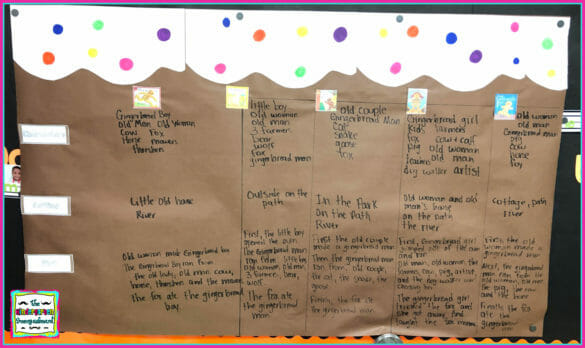 Gingerbread Boy
Old Man Old Woman
Cow Fox
Horse mowers
thrashers
little boy
old woman
old man
3 farmers
bear
wolf
fox
gingerbread man
old couple
Gingerbread Man
Cat
snake
goose
fox
Gingerbread girl
Kids farmers
fox cow + calf
pig old woman
teacher old man
dog walker artist
old woman
old man
Gingerbread man
pig
cow
horse
fox
Little Old house
River
Outside on the
path
In the Park
On the Path
River
Old woman and old
man's house
on the path
the river
cottage, path
river
Old woman made Gingerbread boy
The Gingerbread Boy ran from
the old lady, old man, cow,
horse, thrashers and the mowers
The fox ate the gingerbread
boy.
First, the little boy
opened the oven
The Gingerbread man
ran from little boy,
old woman, old man,
3 farmers, bear,
wolf
The fox ate
the gingerbread
man
First the old couple
made a gingerbread man
Then the gingerbread man
ran from, old couple,
the cat, the snake, the
goose
Finally, the fox ate
the gingerbread man
First, Gingerbread girl
jumped out of the
old man, old woman, the
farmers, cow, pig, artist,
and the dog walker
The gingerbread girl
tricked the fox and
she got away
First, the old
woman made a
gingerbread man
Next, the gingerbread
man ran from the
old woman, old man
the pig, the cow
and the horse
Finally the fox
ate the
gingerbread
The
Kindergarten
Smorgasboard